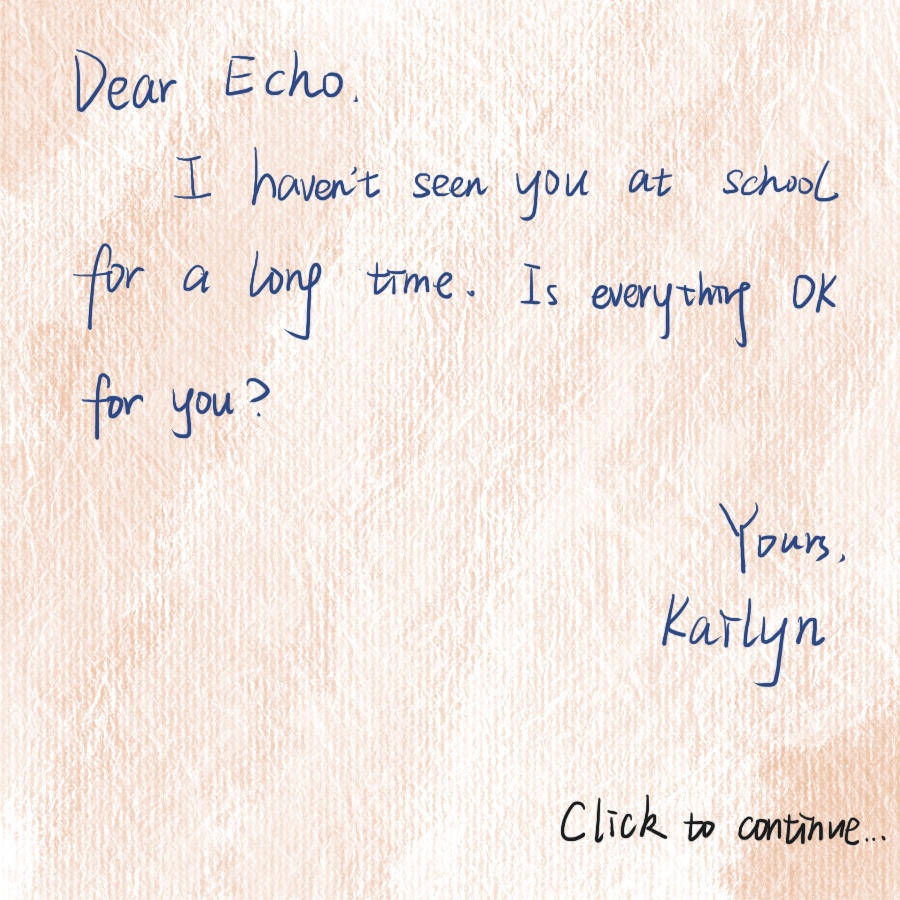 Dear Echo.
I haven't seen you at school
for a long time. Is everything OK
for you?
Yours,
Kailyn
Click to continue...